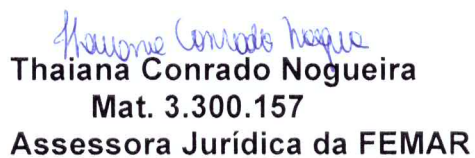 Thaiana Conrado Nogueira
Thaiana Conrado Nogueira
Mat. 3.300.157
Assessora Jurídica da FEMAR